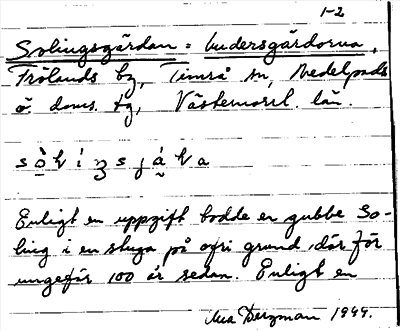 1-2
Solingsgärdan = Ludersgårdorna,
Frölands by, Timrå sn, Medelpads
ö. doms. tg, Västernorrl. län.
Enligt en uppgift bodde en gubbe So-
ling i en stuga på ofri grund där för
ungefär 100 år sedan. Enligt en
Bergman 1944.